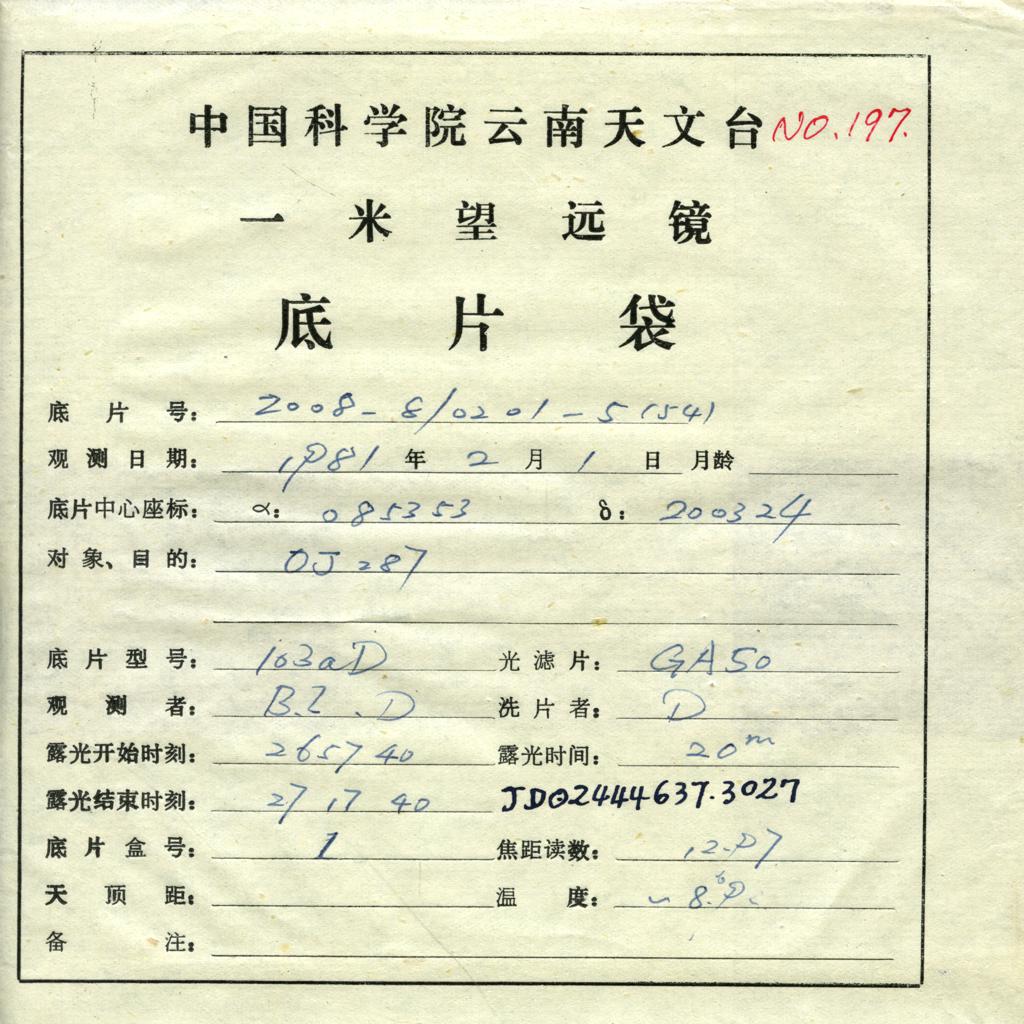 中国科学院云南天文台 NO.197.
一米望远镜
底片袋
底片号: 2008-8/0201-5(54)
观测日期: 1981年2月1日 月龄
底片中心座标: α: 085353 δ: 200324
对象、目的: OJ 287
底片型号: 103aD 光滤片: GA50
观测者: B.Z.D 洗片者: D
露光开始时刻: 265740 露光时间: 20m
露光结束时刻: 271740 JD⊙2444637.3027
底片盒号: 1 焦距读数: 12.97
天顶距: 温度:
备注: